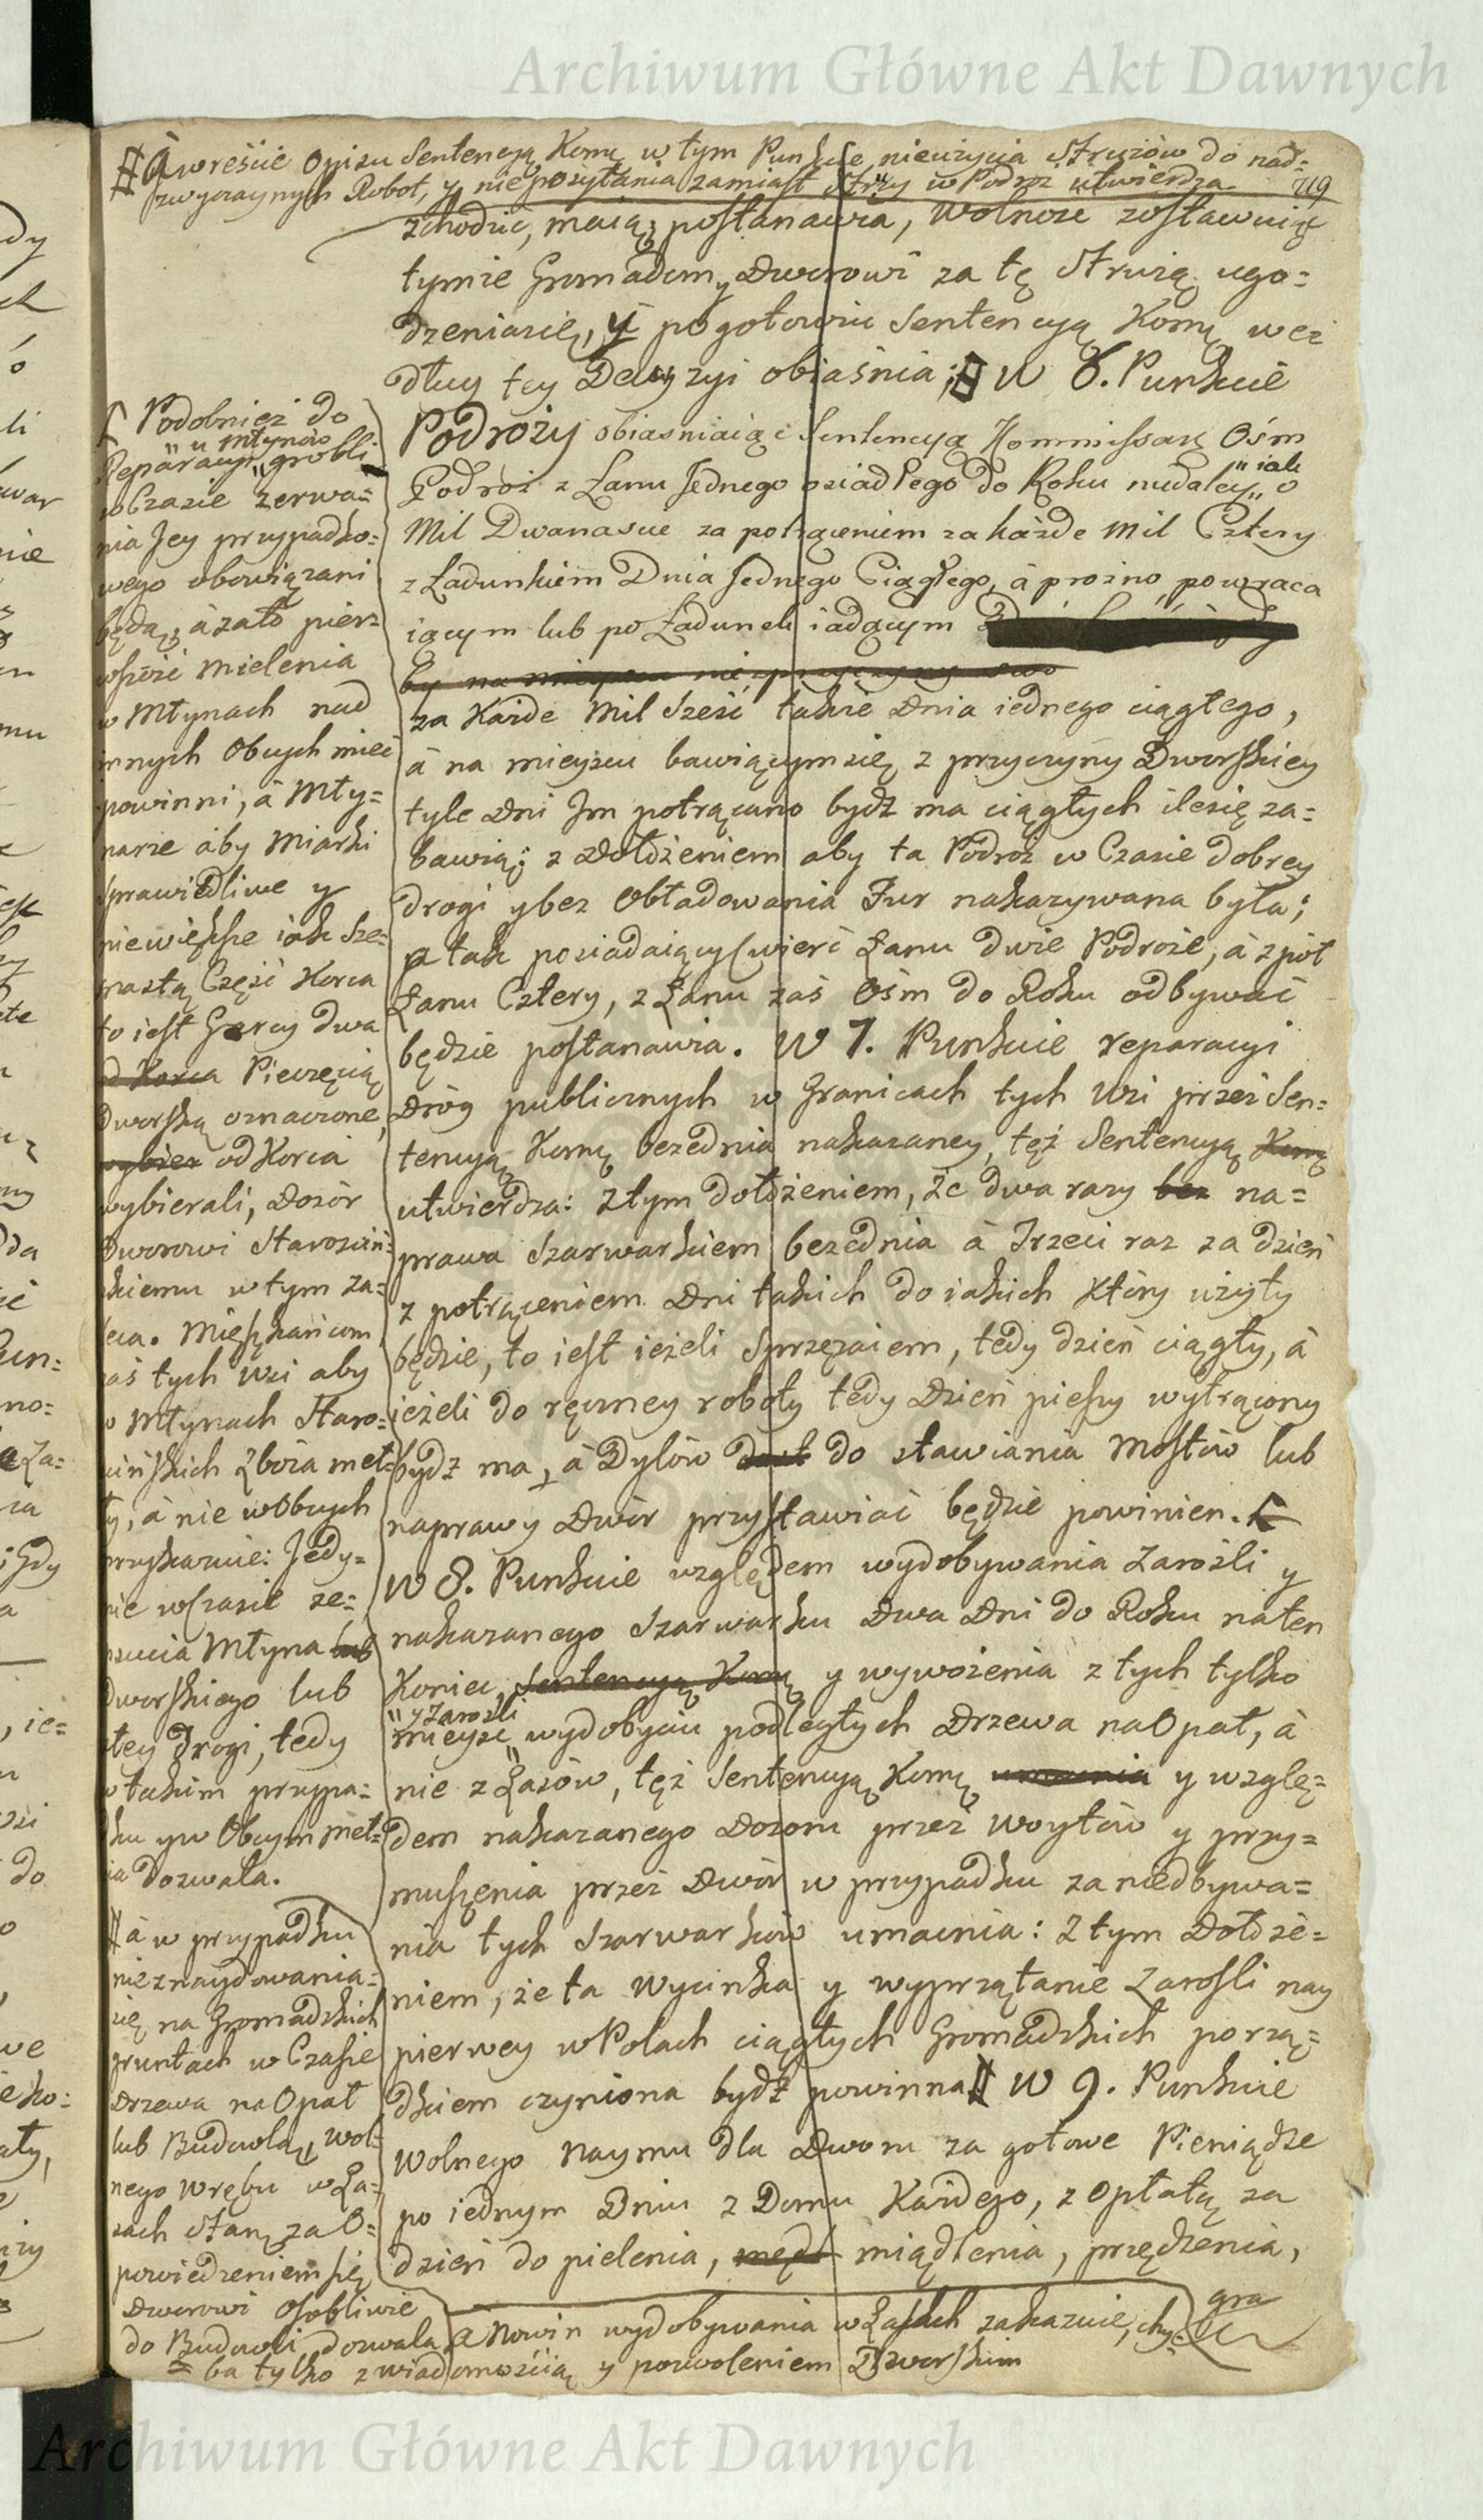 Archiwum Główne Akt Dawnych
à wreście Opisu Sentencyą Komą w tym Punkcie nieużycia Strużów do nad=
zwyczaynych Robot, y nieposyłania zamiast Stróży w Podróż utwierdza
719
zchodzić, maią; postanawia, wolnose zostawuię
tymie Gromadom y Dworowi za tę Strużą ugo=
dzeniasię, y pogotowiu Sentencyą Komą wez
dług tey Decyzyi obiaśnia; W 6. Punkcie
Podroży obiasniaiąc Sentencyą Kommissarz Ośm
Podroż z Łanu Jednego osiadłego do Roku niedaley „ iak „ o
Mil Dwanascie za potrąceniem za każde Mil Cztery
z Ładunkiem Dnia Jednego Ciągłego, à prożno powraca
iącym lub po Ładunek iadącym
by na mieyscu
za Każde Mil Sześć także Dnia iednego ciągłego,
à na mieyscu bawiącymsię z przyczyny Dworskiey
tyle Dni Im potrącano bydź ma ciągłych ilesię za=
bawią; z dołożeniem aby ta Podroż w Czasie dobrey
drogi y bez Obładowania Fur nakazywana była;
a tak posiadaiący Cwierć Łanu dwie Podroże, à z pół
Łanu Cztery, z Łanu zaś Ośm do Roku odbywać
będzie postanawia. W 7. Punkcie reparacyi
Dróg publicznych w Granicach tych Wsi przez Sen=
tencyą Komą bezednia nakazaney, też Sentencyą Komą
utwierdza: z tym dołożeniem, że dwa razy bez na=
prawa Szarwarkiem bezednia à Trzeci raz za dzień
z potrąceniem Dni takich do iakich który użyty
będzie, to iest ieżeli Sprzężaiem, tedy dzień ciągły, à
ieżeli do ręczney roboty tedy Dzień pieszy wytrącony
bydź ma, à Dylów do stawiania Mostów lub
naprawy Dwór przystawiać będzie powinien.
W 8. Punkcie względem wydobywania Zarośli y
nakazanego Szarwarku Dwa Dni do Roku naten
Koniec, Sentencyą Komą y wywożenia z tych tylko
„ y Zarośli
mieysc „ wydobyciu podległych Drzewa na Opał, à
nie z Łasów, też Sentencyą Komą umacnia y wzglę=
dem nakazanego Dozoru przez Woytów y przy=
muszenia przez Dwór w przypadku zaniedbywa=
nia tych Szarwarków umacnia: Z tym Dołoże=
niem, że ta Wycinka y wyprzątanie Zarosli nay
pierwey w Polach ciągłych Gromadzkich porzą=
dkiem czyniona bydź powinna W 9. Punkcie
Wolnego Naymu dla Dworu za gotowe Pieniądze
po iednym Dniu z Domu Każdego, z Opłatą za
dzień do pielenia, międl miądlenia, przędzenia,
gra
Podobnież do
„ u Młynów
Reparacyi „ grobli
w Czasie zerwa=
nia Jey przypadko=
wego obowiązani
będą; à zato pier=
wszość mielenia
w Młynach nad
innych Obcych mieć
powinni, à Mły=
narze aby Miarki
sprawiedliwe y
niewiększe iak Sze=
snastą Część Korca
to iest Garcy dwa
od Korca Pieczęcią
Dworską oznaczone,
wybier od Korca
wybierali, Dozór
Dworowi Starościń=
skiemu w tym za=
leca. Mieszkańcom
zaś tych Wsi aby
w Młynach Staro=
ścińskich Zboża meł=
ły, à nie w Obcych
przykazuie: Jedy=
nie w Czasie ze=
psucia Młyna lub
Dworskiego lub
złey Drogi, tedy
w takim przypa=
dku y w Obcym mel=
ia dozwala.
à w przypadku
nieznaydowania=
się na Gromadzkich
gruntach w Czasie
Drzewa na Opał
lub Budowlą, wol=
nego Wrębu w Ła=
sach Starz. za O=
powiedzeniem się
Dworowi Osobliwie
do Budowli dozwala
à Nowin wydobywania w Łasach zakazuie, chy=
= ba tylko z wiadomością y pozwoleniem Dworskim
Archiwum Główne Akt Dawnych